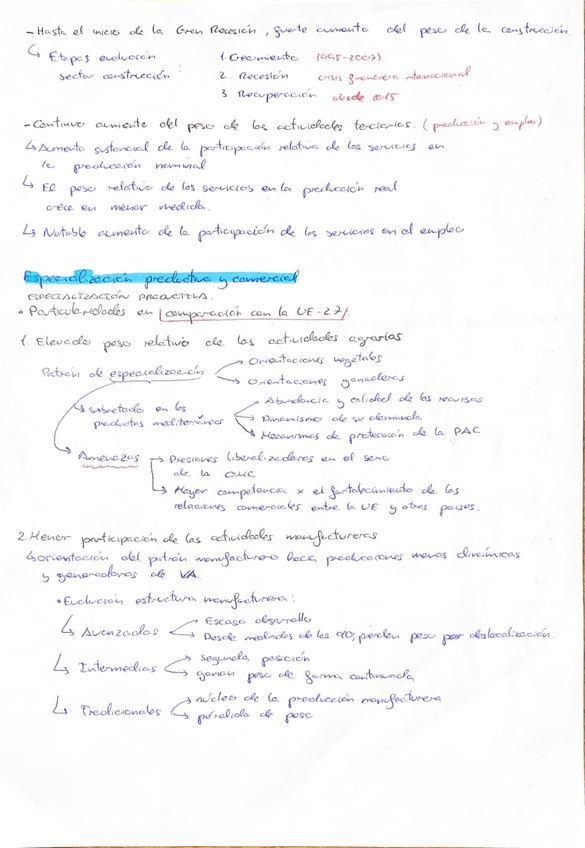 - Hasta el inicio de la Gran Recesión, fuerte aumento del peso de la construcción.
↳ Etapas evolución sector construcción:
1. Crecimiento (1995-2007)
2. Recesión crisis financiera internacional
3 Recuperación desde 2015
- Continuo aumento del peso de las actividades terciarias. (producción y empleo)
↳ Aumento sustancial de la participación relativa de los servicios en
la producción nominal
↳ El peso relativo de los servicios en la producción real
crece en menor medida.
↳ Notable aumento de la participación de los servicios en el empleo
Especialización productiva y comercial
ESPECIALIZACIÓN PRODUCTIVA.
• Particularidades en comparación con la UE-27.
1. Elevado peso relativo de las actividades agrarias
Patrón de especialización → Orientaciones vegetales
→ Orientaciones ganaderas
↳ sobretodo en los productos mediterráneos
→ Abundancia y calidad de los recursos
→ Dinamismo de su demanda
→ Mecanismos de protección de la PAC
Amenazas → Presiones liberalizadoras en el seno
de la OMC
↳ Mayor competencia x el fortalecimiento de las
relaciones comerciales entre la UE y otros países.
2. Menor participación de las actividades manufactureras
↳ orientación del patrón manufacturero hacia producciones menos dinámicas
y generadoras de VA.
• Evolución estructura manufacturera:
↳ Avanzadas → Escaso desarrollo
→ Desde mediados de los 90, pierden peso por deslocalización.
↳ Intermedias → segunda posición
→ ganan peso de forma continuada
↳ Tradicionales → núcleo de la producción manufacturera
→ pérdida de peso